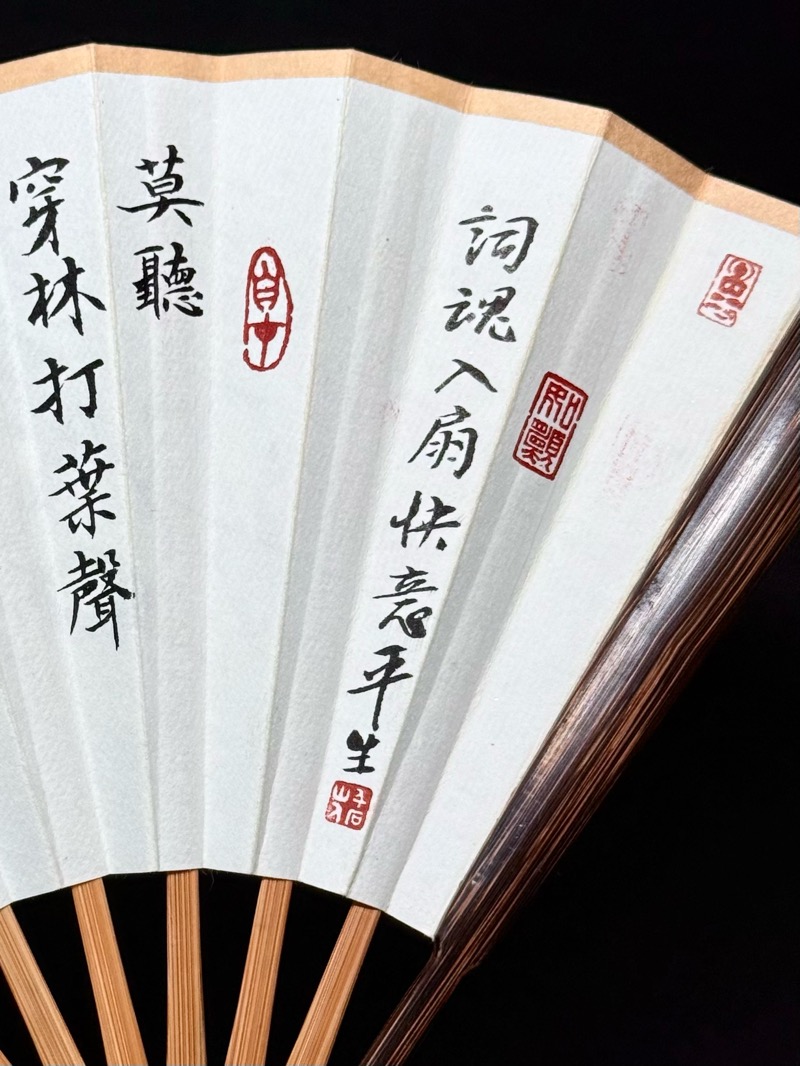 詞魂入扇快意平生
莫聽
穿林打葉聲